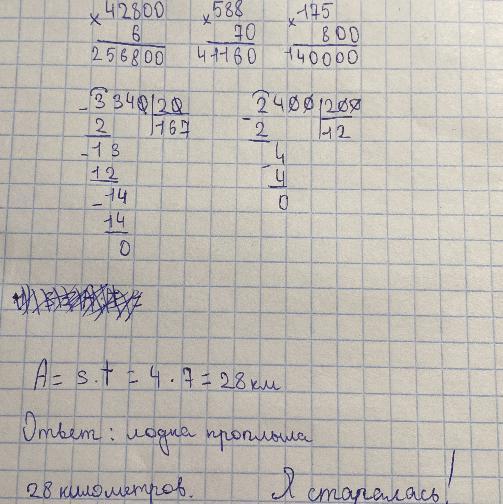 ×42800 ×588 ×175
6 70 800
256800 41160 140000
-3340|20 -2400|200
2 |167 2 |12
-13 -4
12 4
-14 0
14
0
A = s · t = 4 · 7 = 28 км
Ответ: лодка проплыла
28 километров. Я старалась!